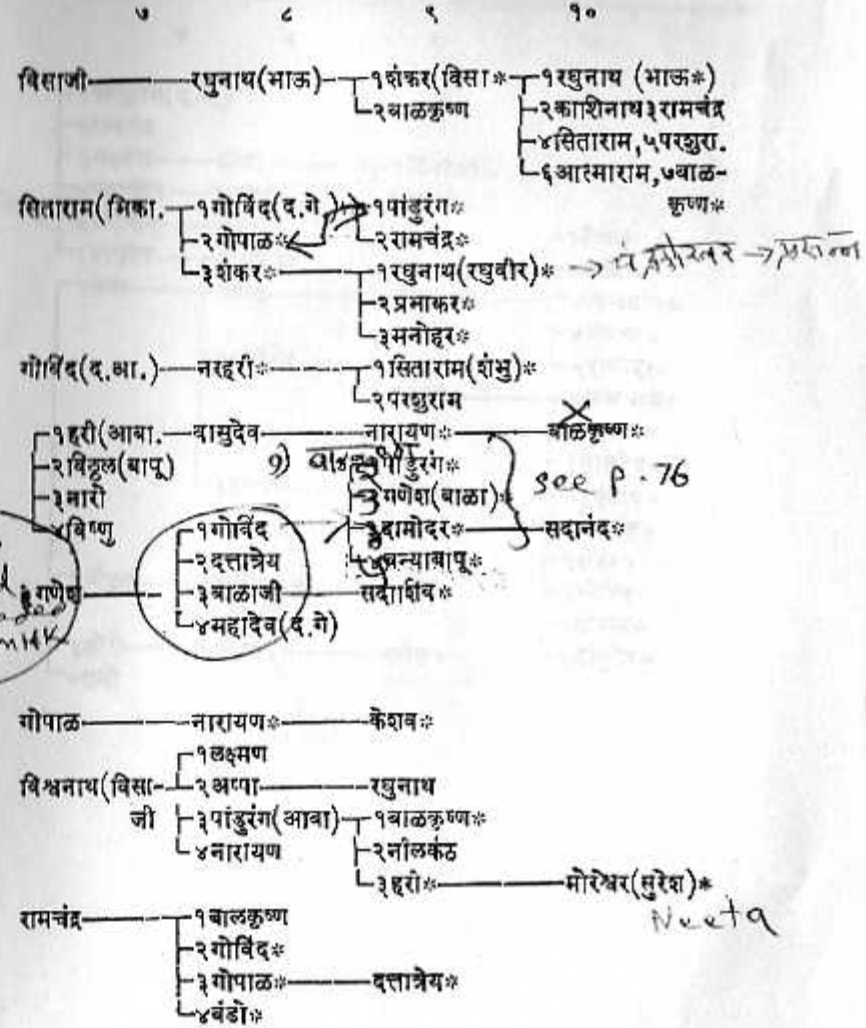 ७ ८ ९ १०
विसाजी रघुनाथ(भाऊ) १शंकर(विसा* १रघुनाथ (भाऊ*)
२बाळकृष्ण २काशिनाथ३रामचंद्र
४सिताराम,५परशुरा.
६आत्माराम,७बाळ-
कृष्ण*
सिताराम(भिका. १गोविंद(द.गे) १पांडुरंग*
२गोपाळ* २रामचंद्र*
३शंकर* १रघुनाथ(रघुवीर)*
२प्रभाकर*
३मनोहर*
गोविंद(द.आ.) नरहरी* १सिताराम(शंभु)*
२परशुराम
१हरी(आबा. वासुदेव नारायण* बाळकृष्ण*
२विठ्ठल(बापू) १) १पांडुरंग*
३नारो २गणेश(बाळा)* see p. 76
४विष्णु १गोविंद ३दामोदर* सदानंद*
२दत्तात्रेय ४बन्याबापू*
गणेश ३बाळाजी सदाशिव*
४महादेव(द.गे)
गोपाळ नारायण* केशव*
१लक्ष्मण
विश्वनाथ(विसा- २अप्पा रघुनाथ
जी ३पांडुरंग(आबा) १बाळकृष्ण*
४नारायण २नीलकंठ
३हरी* मोरेश्वर(सुरेश)*
Neeta
रामचंद्र १बालकृष्ण
२गोविंद*
३गोपाळ* दत्तात्रेय*
४बंडो*